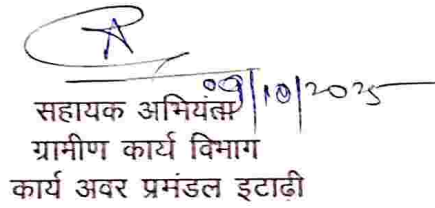 09/10/2025
सहायक अभियंता
ग्रामीण कार्य विभाग
कार्य अवर प्रमंडल इटाढ़ी